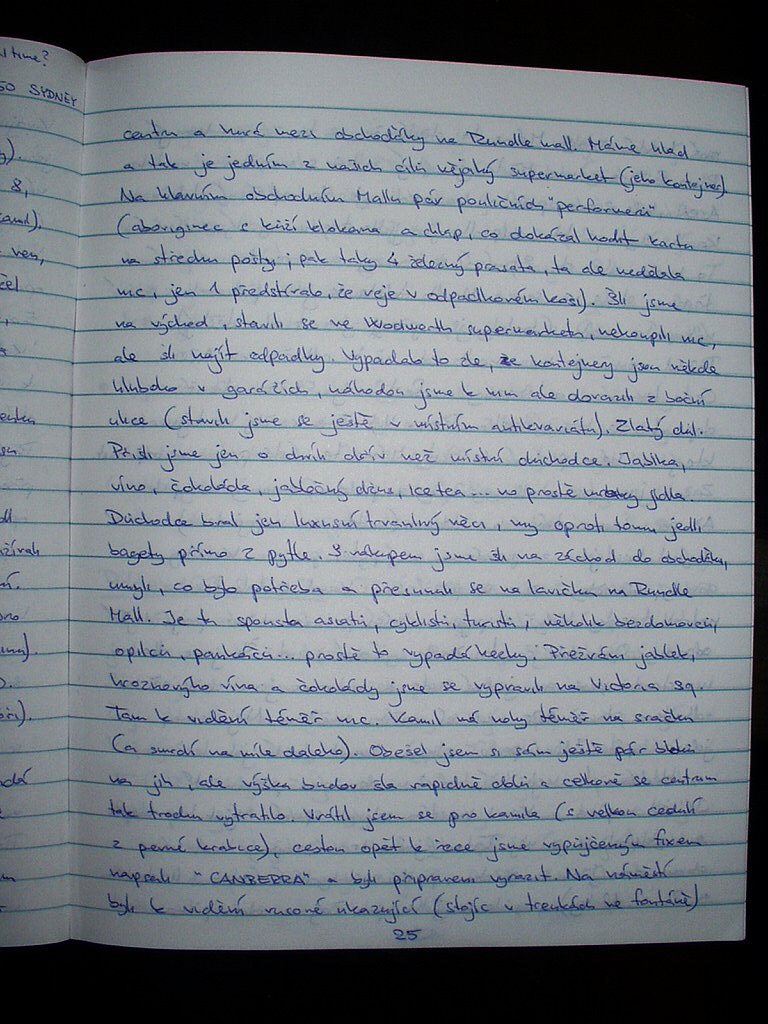 l time?
50 SYDNEY
centru a hurá mezi obchodďáky na Rundle mall. Máme hlad
a tak je jedním z našich cílů nějaký supermarket (jeho kontejner).
Na hlavním obchodním Mallu pár pouličních "performerů"
(aboriginec s kůží klokana a chlap, co dokázal hodit kartu
na střechu pošty; pak taky 4 železný prasata, ta ale nedělala
nic, jen 1 předstíralo, že ryje v odpadkovém koši). Šli jsme
na východ, stavili se ve Woolworth supermarketu, nekoupili nic,
ale šli najít odpadky. Vypadalo to zle, že kontejnery jsou někde
hluboko v garážích, náhodou jsme k nim ale dorazili z boční
ulice (stavili jsme se ještě v místním antikvariátu). Zlatý důl.
Přišli jsme jen o chvíli dřív než místní důchodce. Jablka,
víno, čokoláda, jablečný džus, Ice tea... no prostě hromady jídla.
Důchodce bral jen luxusní trvanlivý věci, my oproti tomu jedli
bagety přímo z pytle. S nákupem jsme šli na záchod do obchoďáku,
umyli, co bylo potřeba a přesunuli se na lavičku na Rundle
Mall. Je tu spousta asiatů, cyklistů, turistů, několik bezdomovců,
opilců, pankáčů... prostě to vypadá hezky. Přežráni jablek,
hroznovýho vína a čokolády jsme se vypravili na Victoria sq.
Tam k vidění téměř nic. Kamil má nohy téměř na sračku
(a smrdí na míle daleko). Obešel jsem si sám ještě pár bloků
na jih, ale výška budov šla rapidně dolů a celkově se centrum
tak trochu vytratilo. Vrátil jsem se pro kamila (s velkou cedulí
z pevné krabice), cestou opět k řece jsme vypůjčeným fixem
napsali "CANBERRA" a byli připraveni vyrazit. Na náměstí
byli k vidění ukazující (stojíc v trenkách ve fontáně)
25